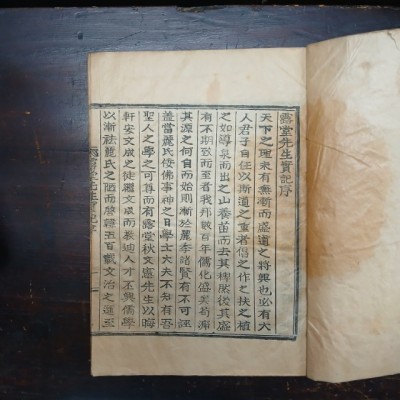 露堂先生實記序
天下之理未有無漸而盛道之將興也必有大
人君子自任以斯道之重者倡之作之扶之植
之如導泉而出之山養苗而去其稗然後其盛
有不期致而至者我邦數百年儒化盛矣苟求
其源之何自而始則漸於麗季諸賢有不可誣
盖當麗氏侫佛事神之日學士大夫不知有吾
聖人之學之可尊而有露堂秋文憲先生以晦
軒安文成之徒繼文成而義迪人才丕興儒學
以漸祛麗氏之陋而啓
五百載文治之運至